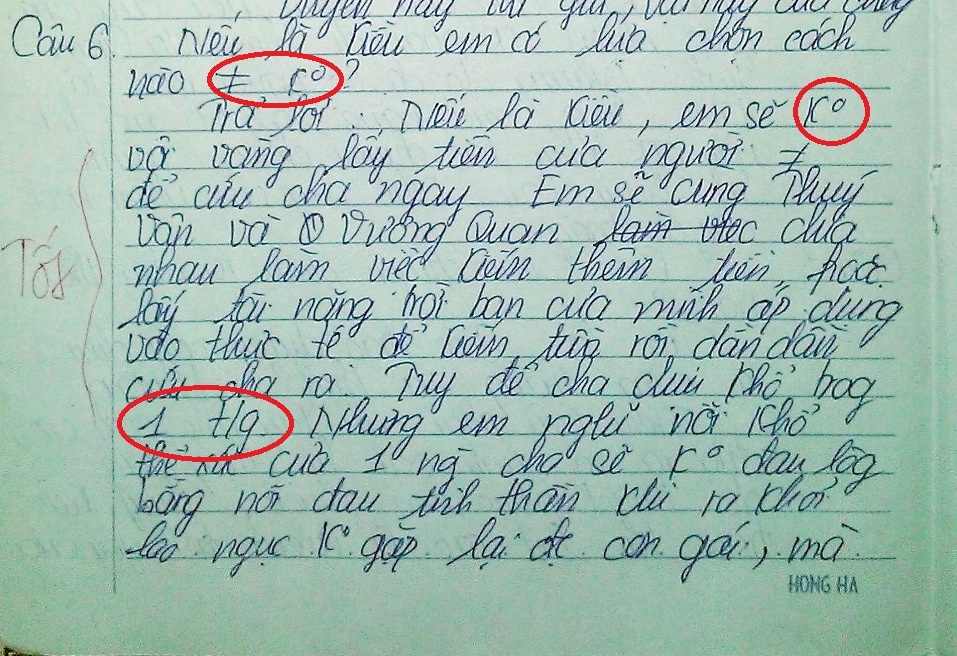 Duyên này thì giữ, vật này của chung
Câu 6. Nếu là Kiều em có lựa chọn cách
nào ≠ K°?
Trả lời: Nếu là Kiều, em sẽ K°
vội vàng lấy tiền của người ≠
để cứu cha ngay Em sẽ cùng Thuý
Vân và Vương Quan làm việc chia
nhau làm việc kiếm thêm tiền, hoặc
Tốt
lấy tài năng trời ban của mình áp dụng
vào thực tế để kiếm tiền rồi dần dần
cứu cha ra. Tuy để cha chịu khổ
1 t/g Nhưng em nghĩ nỗi khổ
thể xác của 1 ng cha sẽ K° đau
bằng nỗi đau tinh thần khi ra khỏi
lao ngục K° gặp lại đc con gái, mà
HONG HA